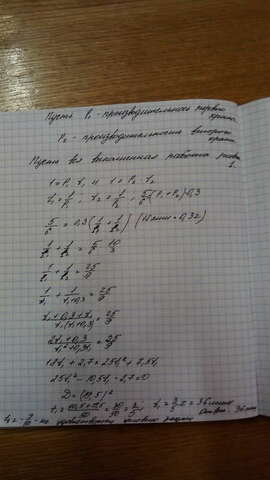 Пусть P₁ - производительность первого
крана
P₂ - производительность второго
крана
Пусть вся выполненная работа равна
1.
1 = P₁ t₁ и 1 = P₂ t₂
5/6 = 0,3 (1/t₁ + 1/t₂) (18 мин = 0,3 ч)
1/t₁ + 1/t₂ = 5/6 · 10/3
1/t₁ + 1/t₂ = 25/9
1/t₁ + 1/(t₁+0,3) = 25/9
(t₁+0,3+t₁)/(t₁(t₁+0,3)) = 25/9
(2t₁+0,3)/(t₁²+0,3t₁) = 25/9
18t₁ + 2,7 = 25t₁² + 7,5t₁
25t₁² - 10,5t₁ - 2,7 = 0
D = (19,5)²
t₁ = (10,5+19,5)/50 = 30/50 = 3/5 ч t₁ = 3/5 ч = 36 мин
Ответ: 36 мин
не удовлетворяет условию задачи